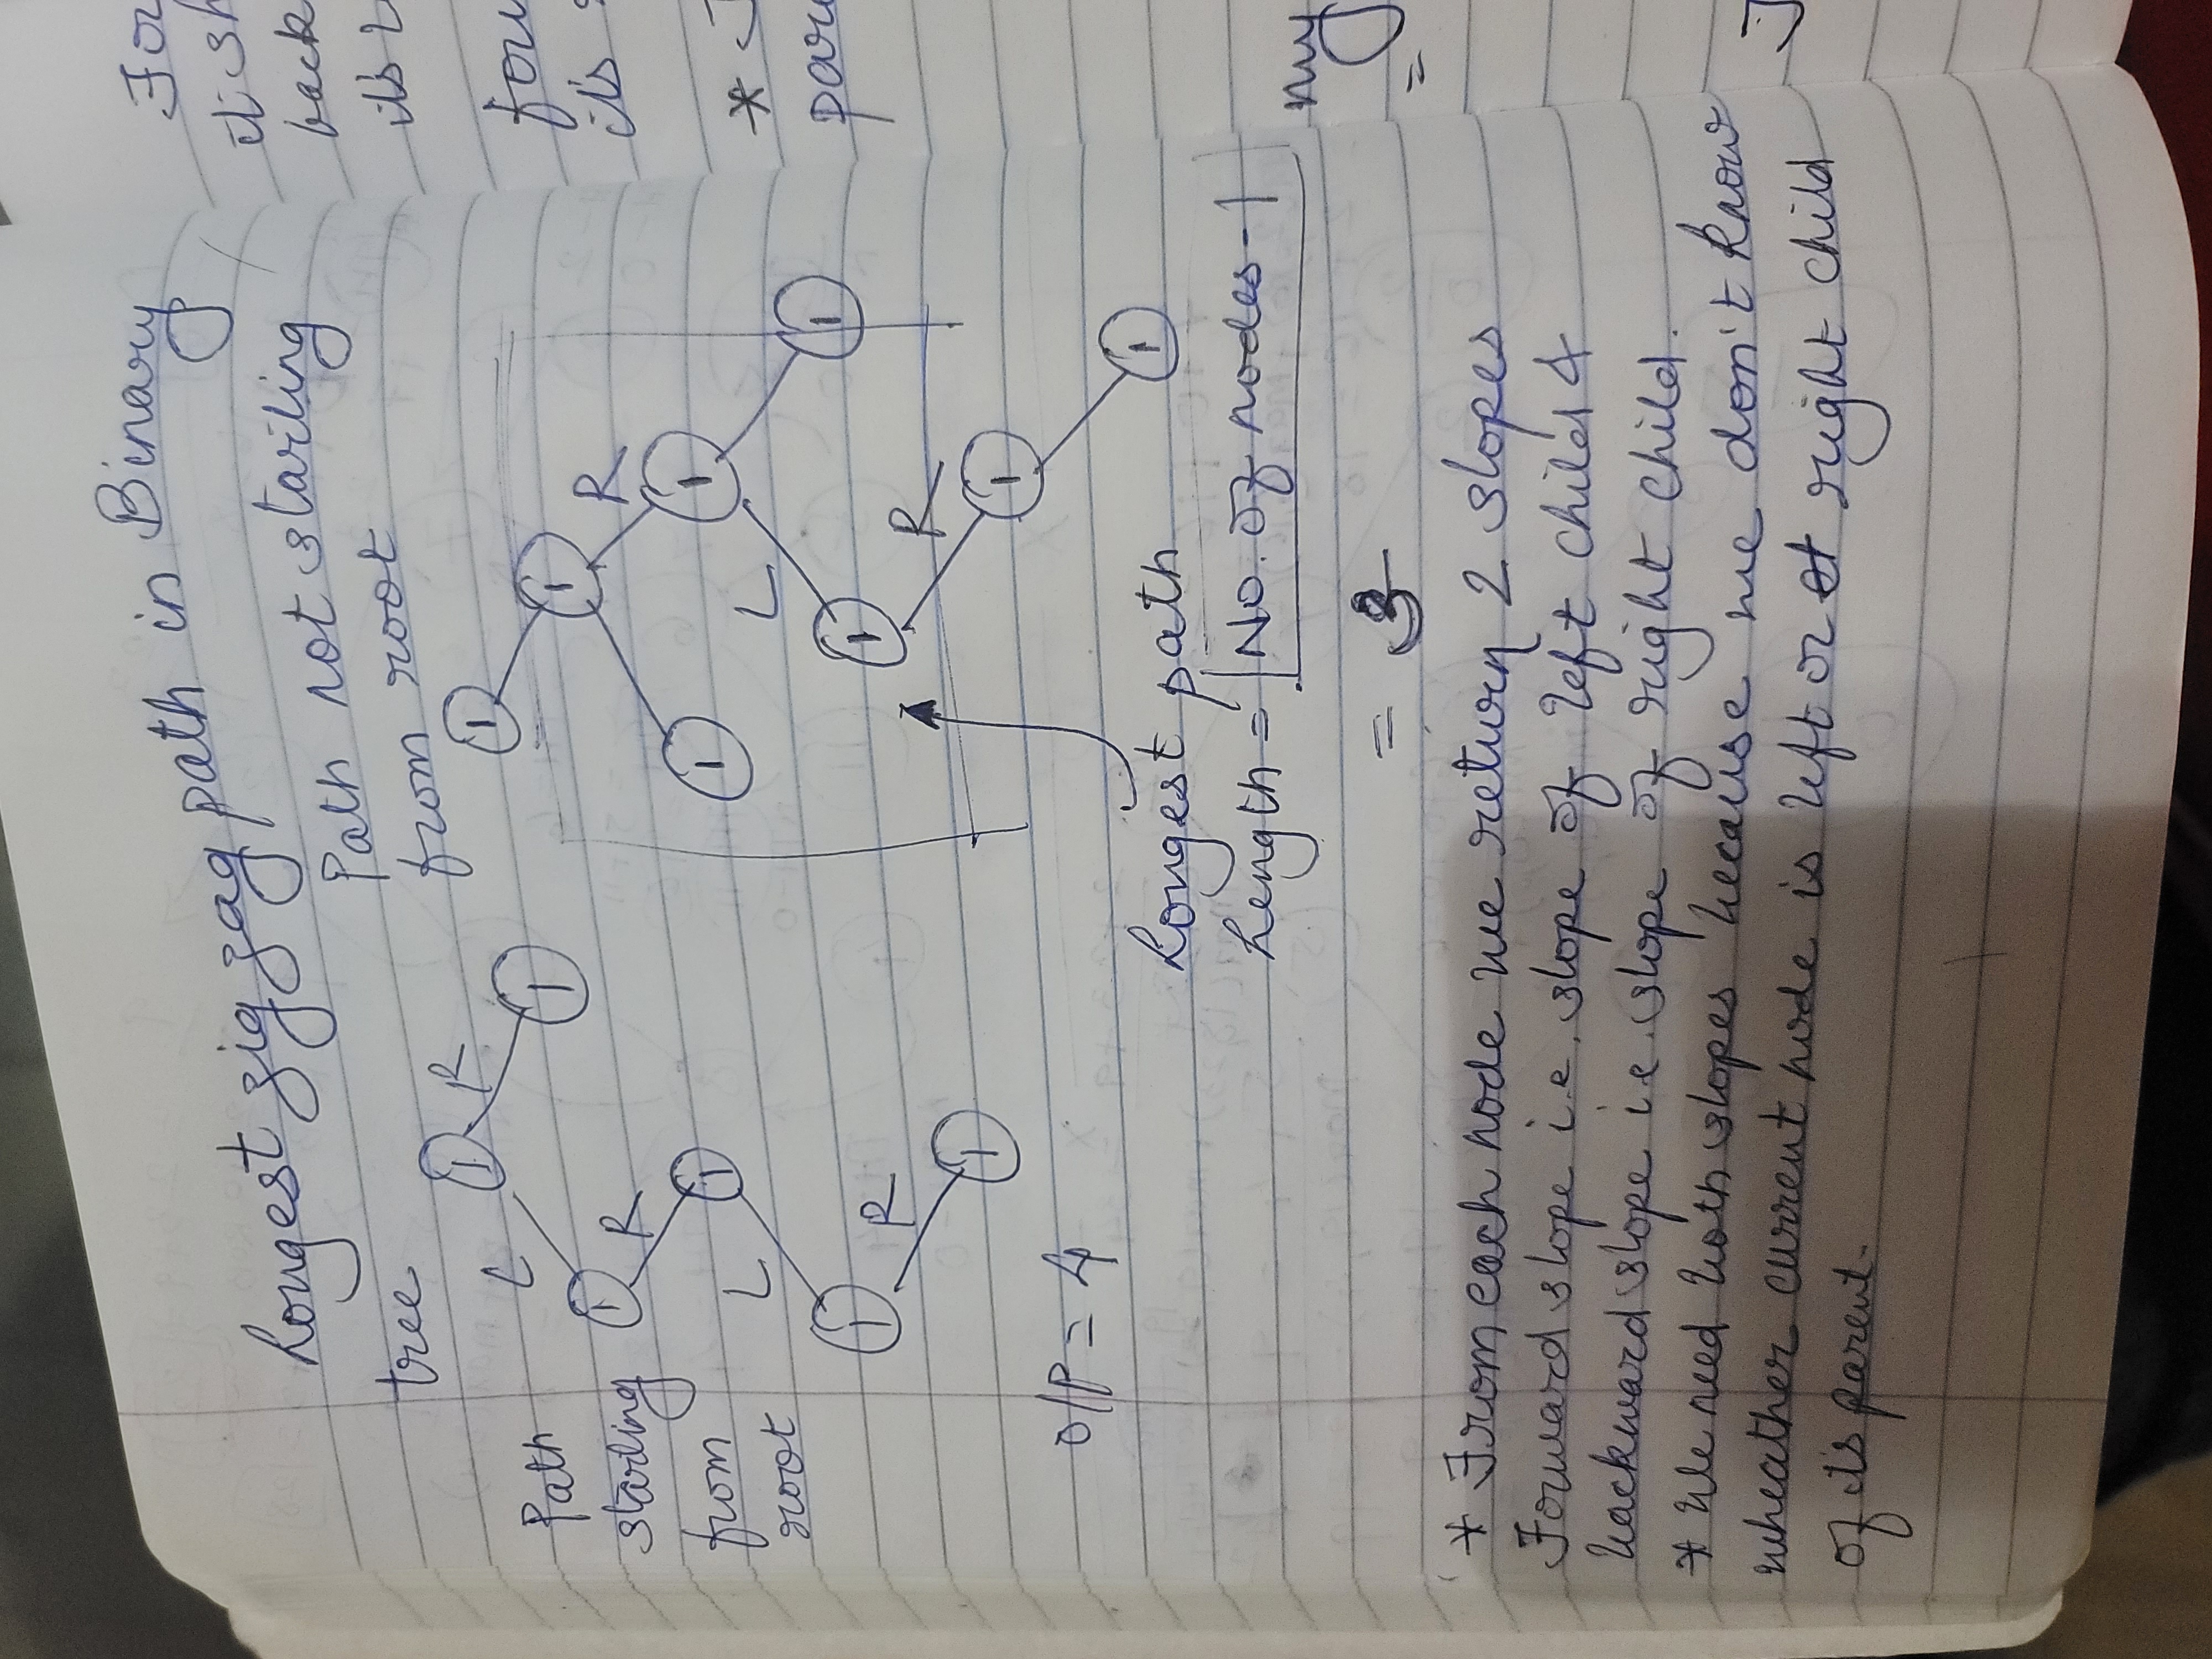 Longest zig zag path in Binary
tree
Path not starting
from root
Path
starting
from
root
1
L
R
1
1
R
1
L
1
R
1
O/P = 4
1
1
R
1
1
L
1
1
R
1
1
Longest path
Length = No. of nodes - 1
= 3
* From each node we return 2 slopes
Forward slope i.e. slope of left child &
backward slope i.e. slope of right child.
* We need both slopes because we don't know
wheather current node is left or right child
of it's parent.
For
it sh
back
it's
fow
it's
*
par
my
=